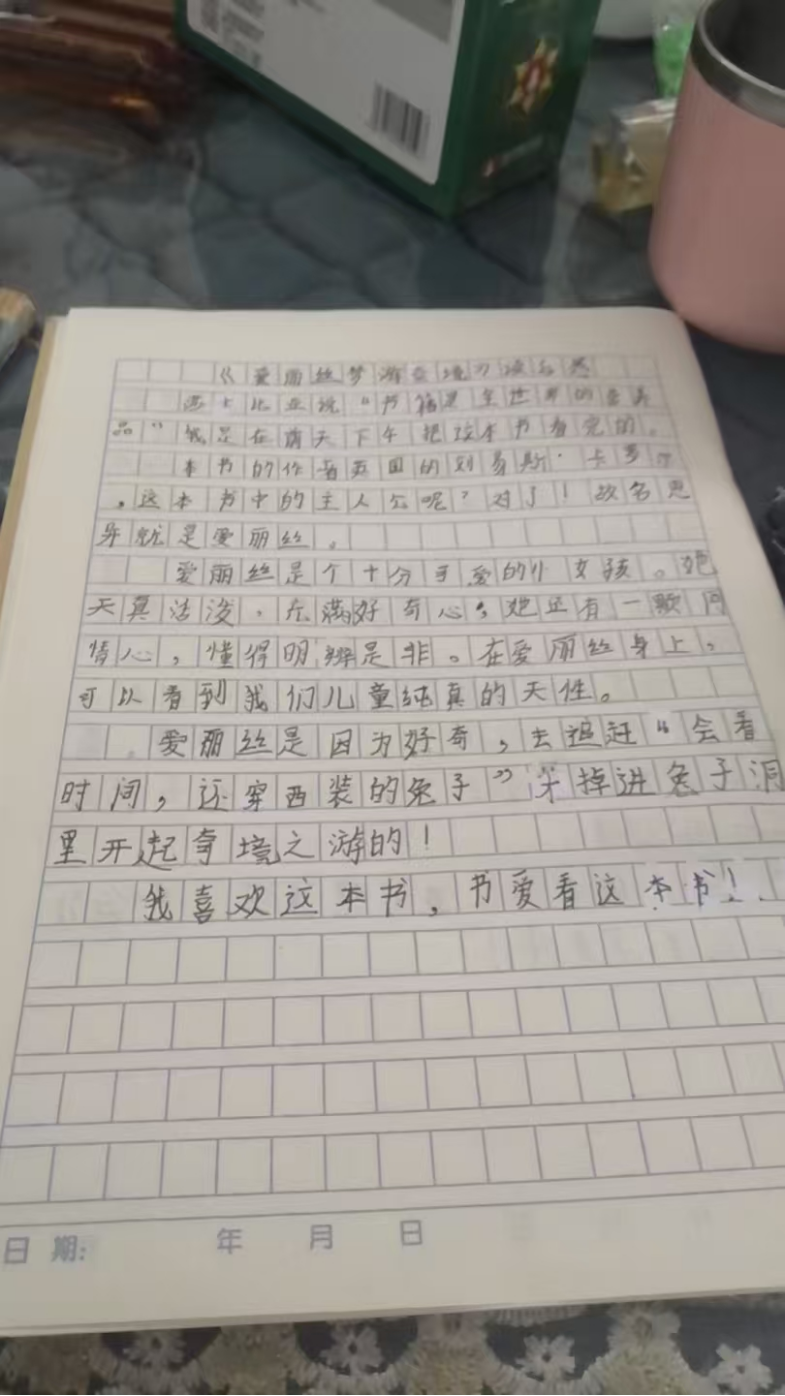 《爱丽丝梦游奇境》读后感
莎士比亚说“书籍是全世界的营养
品”我是在前天下午把这本书看完的。
本书的作者英国的刘易斯·卡罗尔
，这本书中的主人公呢？对了！故名思
就是爱丽丝。
爱丽丝是个十分可爱的小女孩。她
天真活泼，充满好奇心，她还有一颗同
情心，懂得明辨是非。在爱丽丝身上，
可以看到我们儿童纯真的天性。
爱丽丝是因为好奇，去追赶“会看
时间，还穿西装的兔子”才掉进兔子洞
里开起奇境之游的！
我喜欢这本书，书爱看这本书！
日期： 年 月 日